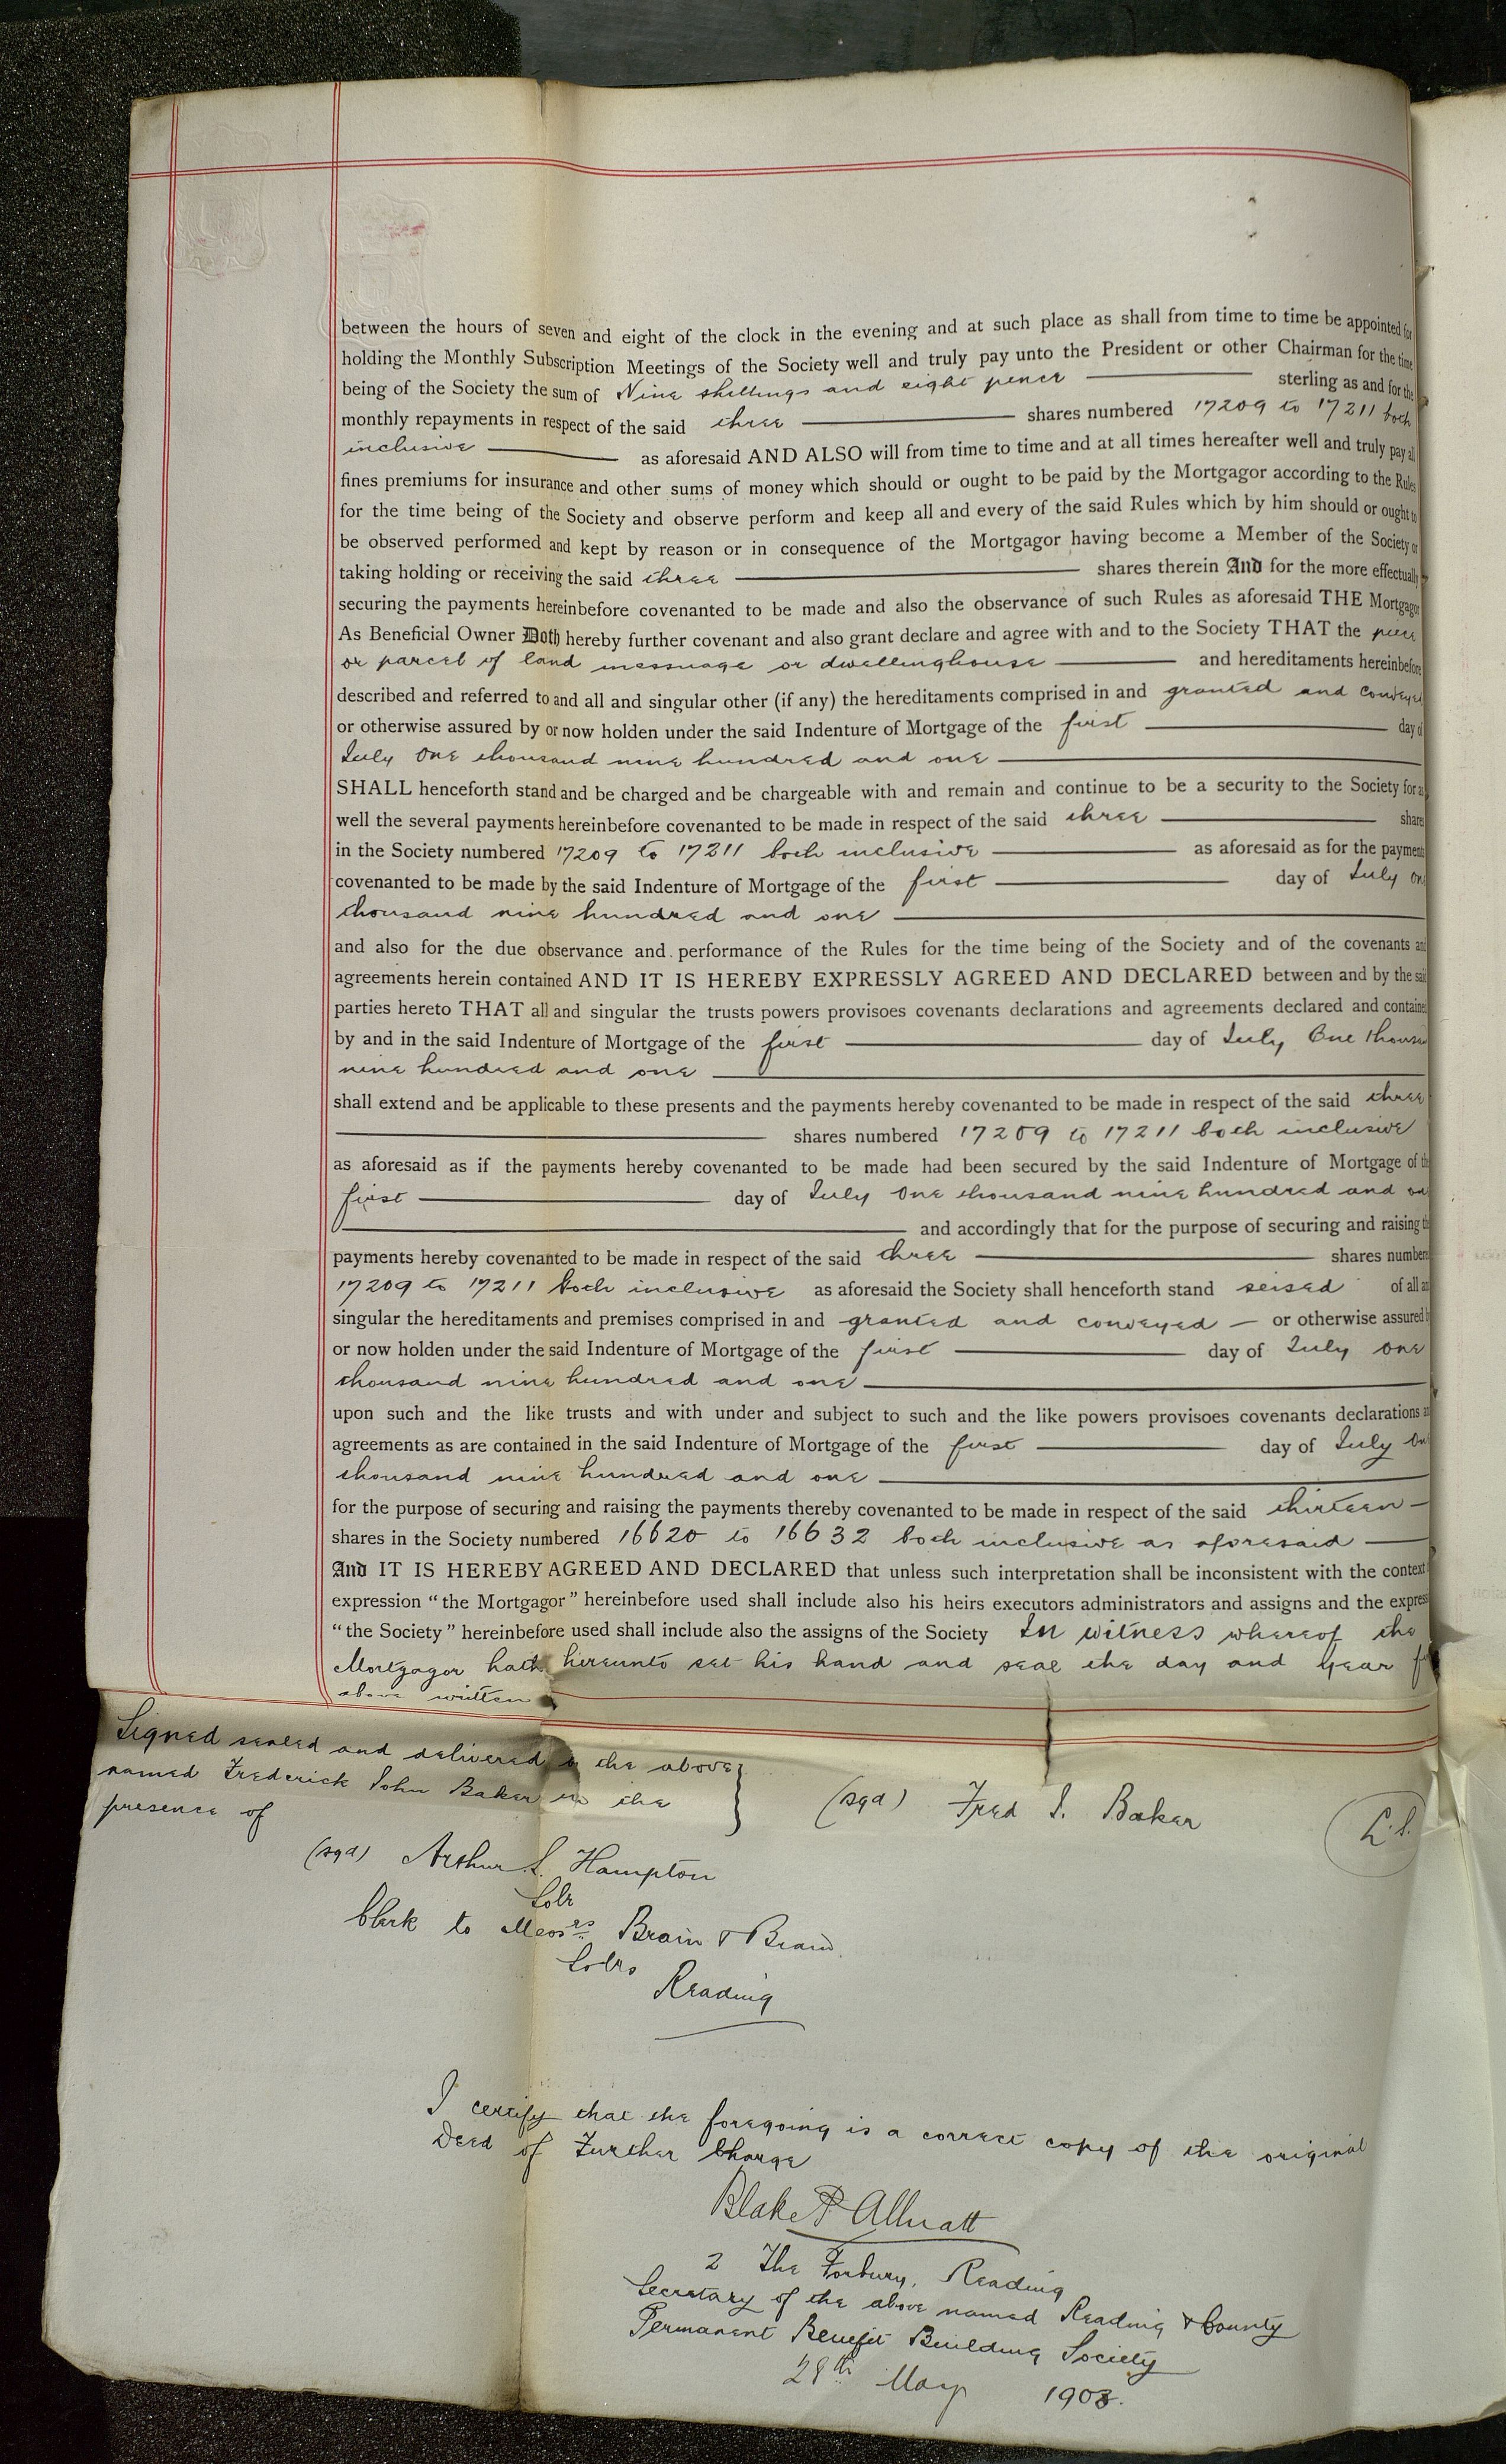 between the hours of seven and eight of the clock in the evening and at such place as shall from time to time be appointed for
holding the Monthly Subscription Meetings of the Society well and truly pay unto the President or other Chairman for the time
being of the Society the sum of Nine shillings and eight pence sterling as and for the
monthly repayments in respect of the said three shares numbered 17209 to 17211 both
inclusive as aforesaid AND ALSO will from time to time and at all times hereafter well and truly pay all
fines premiums for insurance and other sums of money which should or ought to be paid by the Mortgagor according to the Rules
for the time being of the Society and observe perform and keep all and every of the said Rules which by him should or ought to
be observed performed and kept by reason or in consequence of the Mortgagor having become a Member of the Society or
taking holding or receiving the said three shares therein And for the more effectually
securing the payments hereinbefore covenanted to be made and also the observance of such Rules as aforesaid THE Mortgagor
As Beneficial Owner Doth hereby further covenant and also grant declare and agree with and to the Society THAT the piece
or parcel of land messuage or dwellinghouse and hereditaments hereinbefore
described and referred to and all and singular other (if any) the hereditaments comprised in and granted and conveyed
or otherwise assured by or now holden under the said Indenture of Mortgage of the first day of
July One thousand nine hundred and one
SHALL henceforth stand and be charged and be chargeable with and remain and continue to be a security to the Society for as
well the several payments hereinbefore covenanted to be made in respect of the said three share
in the Society numbered 17209 to 17211 both inclusive as aforesaid as for the payments
covenanted to be made by the said Indenture of Mortgage of the first day of July One
thousand nine hundred and one
and also for the due observance and performance of the Rules for the time being of the Society and of the covenants and
agreements herein contained AND IT IS HEREBY EXPRESSLY AGREED AND DECLARED between and by the said
parties hereto THAT all and singular the trusts powers provisoes covenants declarations and agreements declared and contained
by and in the said Indenture of Mortgage of the first day of July One thousand
nine hundred and one
shall extend and be applicable to these presents and the payments hereby covenanted to be made in respect of the said three
shares numbered 17209 to 17211 both inclusive
as aforesaid as if the payments hereby covenanted to be made had been secured by the said Indenture of Mortgage of the
first day of July One thousand nine hundred and one
and accordingly that for the purpose of securing and raising the
payments hereby covenanted to be made in respect of the said three shares numbered
17209 to 17211 both inclusive as aforesaid the Society shall henceforth stand seised of all and
singular the hereditaments and premises comprised in and granted and conveyed or otherwise assured by
or now holden under the said Indenture of Mortgage of the first day of July One
thousand nine hundred and one
upon such and the like trusts and with under and subject to such and the like powers provisoes covenants declarations and
agreements as are contained in the said Indenture of Mortgage of the first day of July One
thousand nine hundred and one
for the purpose of securing and raising the payments thereby covenanted to be made in respect of the said thirteen
shares in the Society numbered 16620 to 16632 both inclusive as aforesaid
And IT IS HEREBY AGREED AND DECLARED that unless such interpretation shall be inconsistent with the context
expression "the Mortgagor" hereinbefore used shall include also his heirs executors administrators and assigns and the express
"the Society" hereinbefore used shall include also the assigns of the Society In witness whereof the
Mortgagor hath hereunto set his hand and seal the day and year
above written
Signed sealed and delivered by the above
named Frederick John Baker in the
presence of
(sgd) Fred J. Baker L.S.
(sgd) Arthur J. Hampton
Solr
Clerk to Messrs Brain & Brain
Solrs
Reading
I certify that the foregoing is a correct copy of the original
Deed of Further Charge
Blake P Allnatt
2 The Forbury, Reading
Secretary of the above named Reading & County
Permanent Benefit Building Society
28th May 1903.